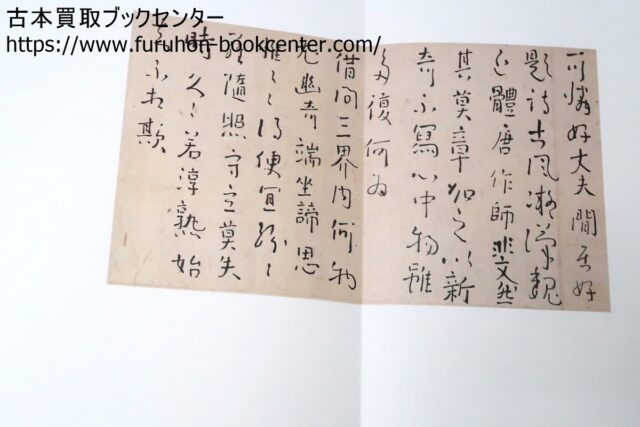 古本買取ブックセンター
https://www.furuhon-bookcenter.com/
可憐好丈夫閒居好
題詩古風擬漢魏
近體唐作師斐然
其莫章加之以新
奇不寫心中物雖
多復何為
借問三界内何物
尤幽奇端坐諦思
惟〻〻得便宜綿〻
能隨照守之莫失
時久〻若淳熟始
知不相欺